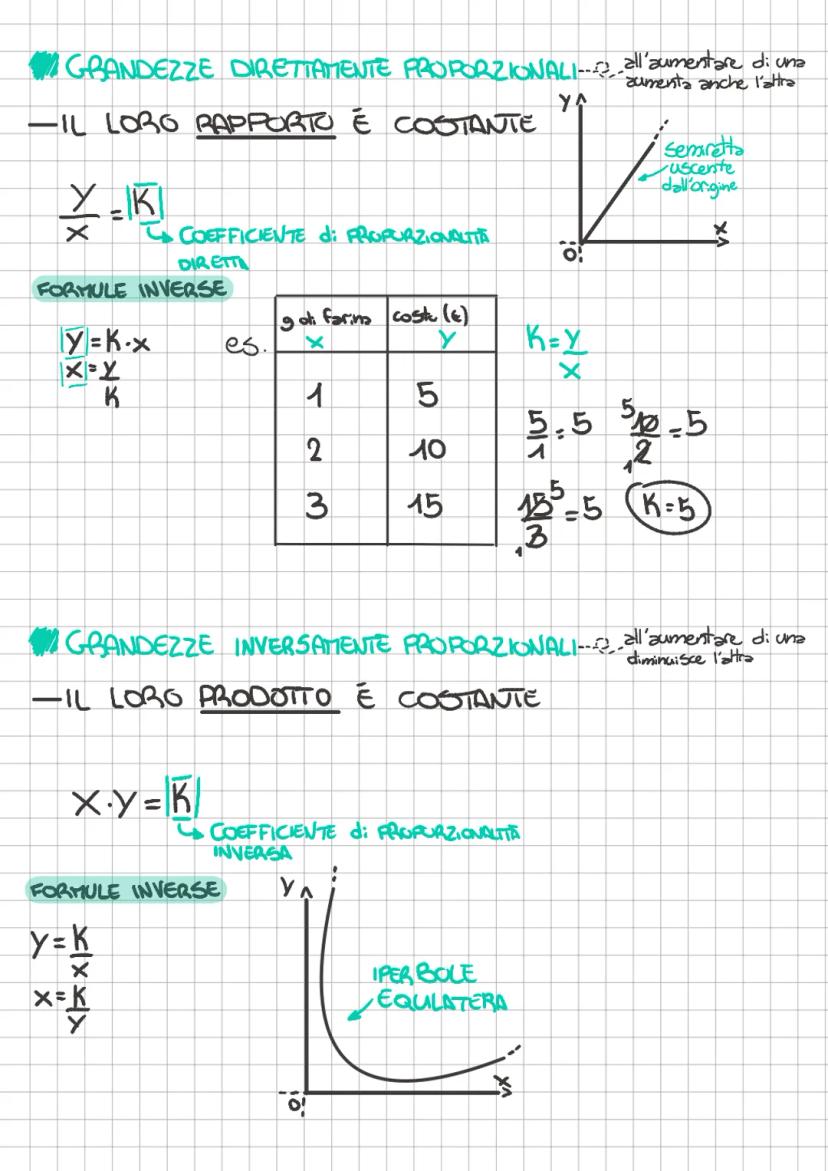 GRANDEZZE DIRETTAMENTE PROPORZIONALI
all'aumentare di una
aumenta anche l'altra
—IL LORO RAPPORTO È COSTANTE
y
semiretta
uscente
dall'origine
x
0
y/x = K
COEFFICIENTE di PROPORZIONALITÀ
DIRETTA
FORMULE INVERSE
y=K·x
x=y/K
es.
g di farina costo (€)
x y
1 5
2 10
3 15
K=y/x
5/1=5 10/2 5 1 =5
15/3 5 1 =5 K=5
GRANDEZZE INVERSAMENTE PROPORZIONALI
all'aumentare di una
diminuisce l'altra
—IL LORO PRODOTTO È COSTANTE
x·y=K
COEFFICIENTE di PROPORZIONALITÀ
INVERSA
FORMULE INVERSE
y=K/x
x=K/y
y
IPERBOLE
EQUILATERA
x
0